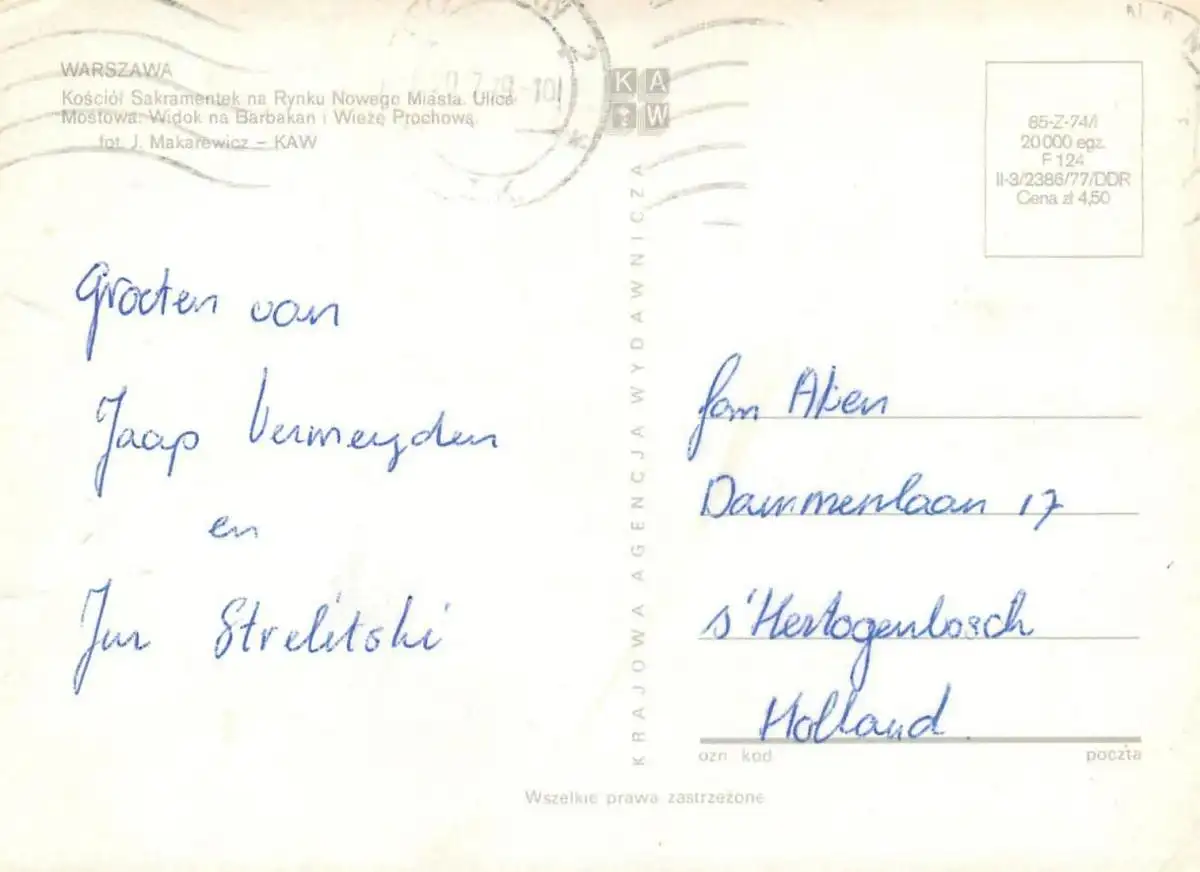 WARSZAWA
Kościół Sakramentek na Rynku Nowego Miasta. Ulica
Mostowa. Widok na Barbakan i Wieżę Prochową.
fot. J. Makarewicz – KAW
K A
W
85-Z-74/I
20 000 egz.
F 124
II-3/2386/77/DDR
Cena zł 4,50
KRAJOWA AGENCJA WYDAWNICZA
Groeten van
Jaap Vermeyden
en
Jur Strelitski
fam Alien
Dammenlaan 17
s'Hertogenbosch
Holland
ozn. kod poczta
Wszelkie prawa zastrzeżone